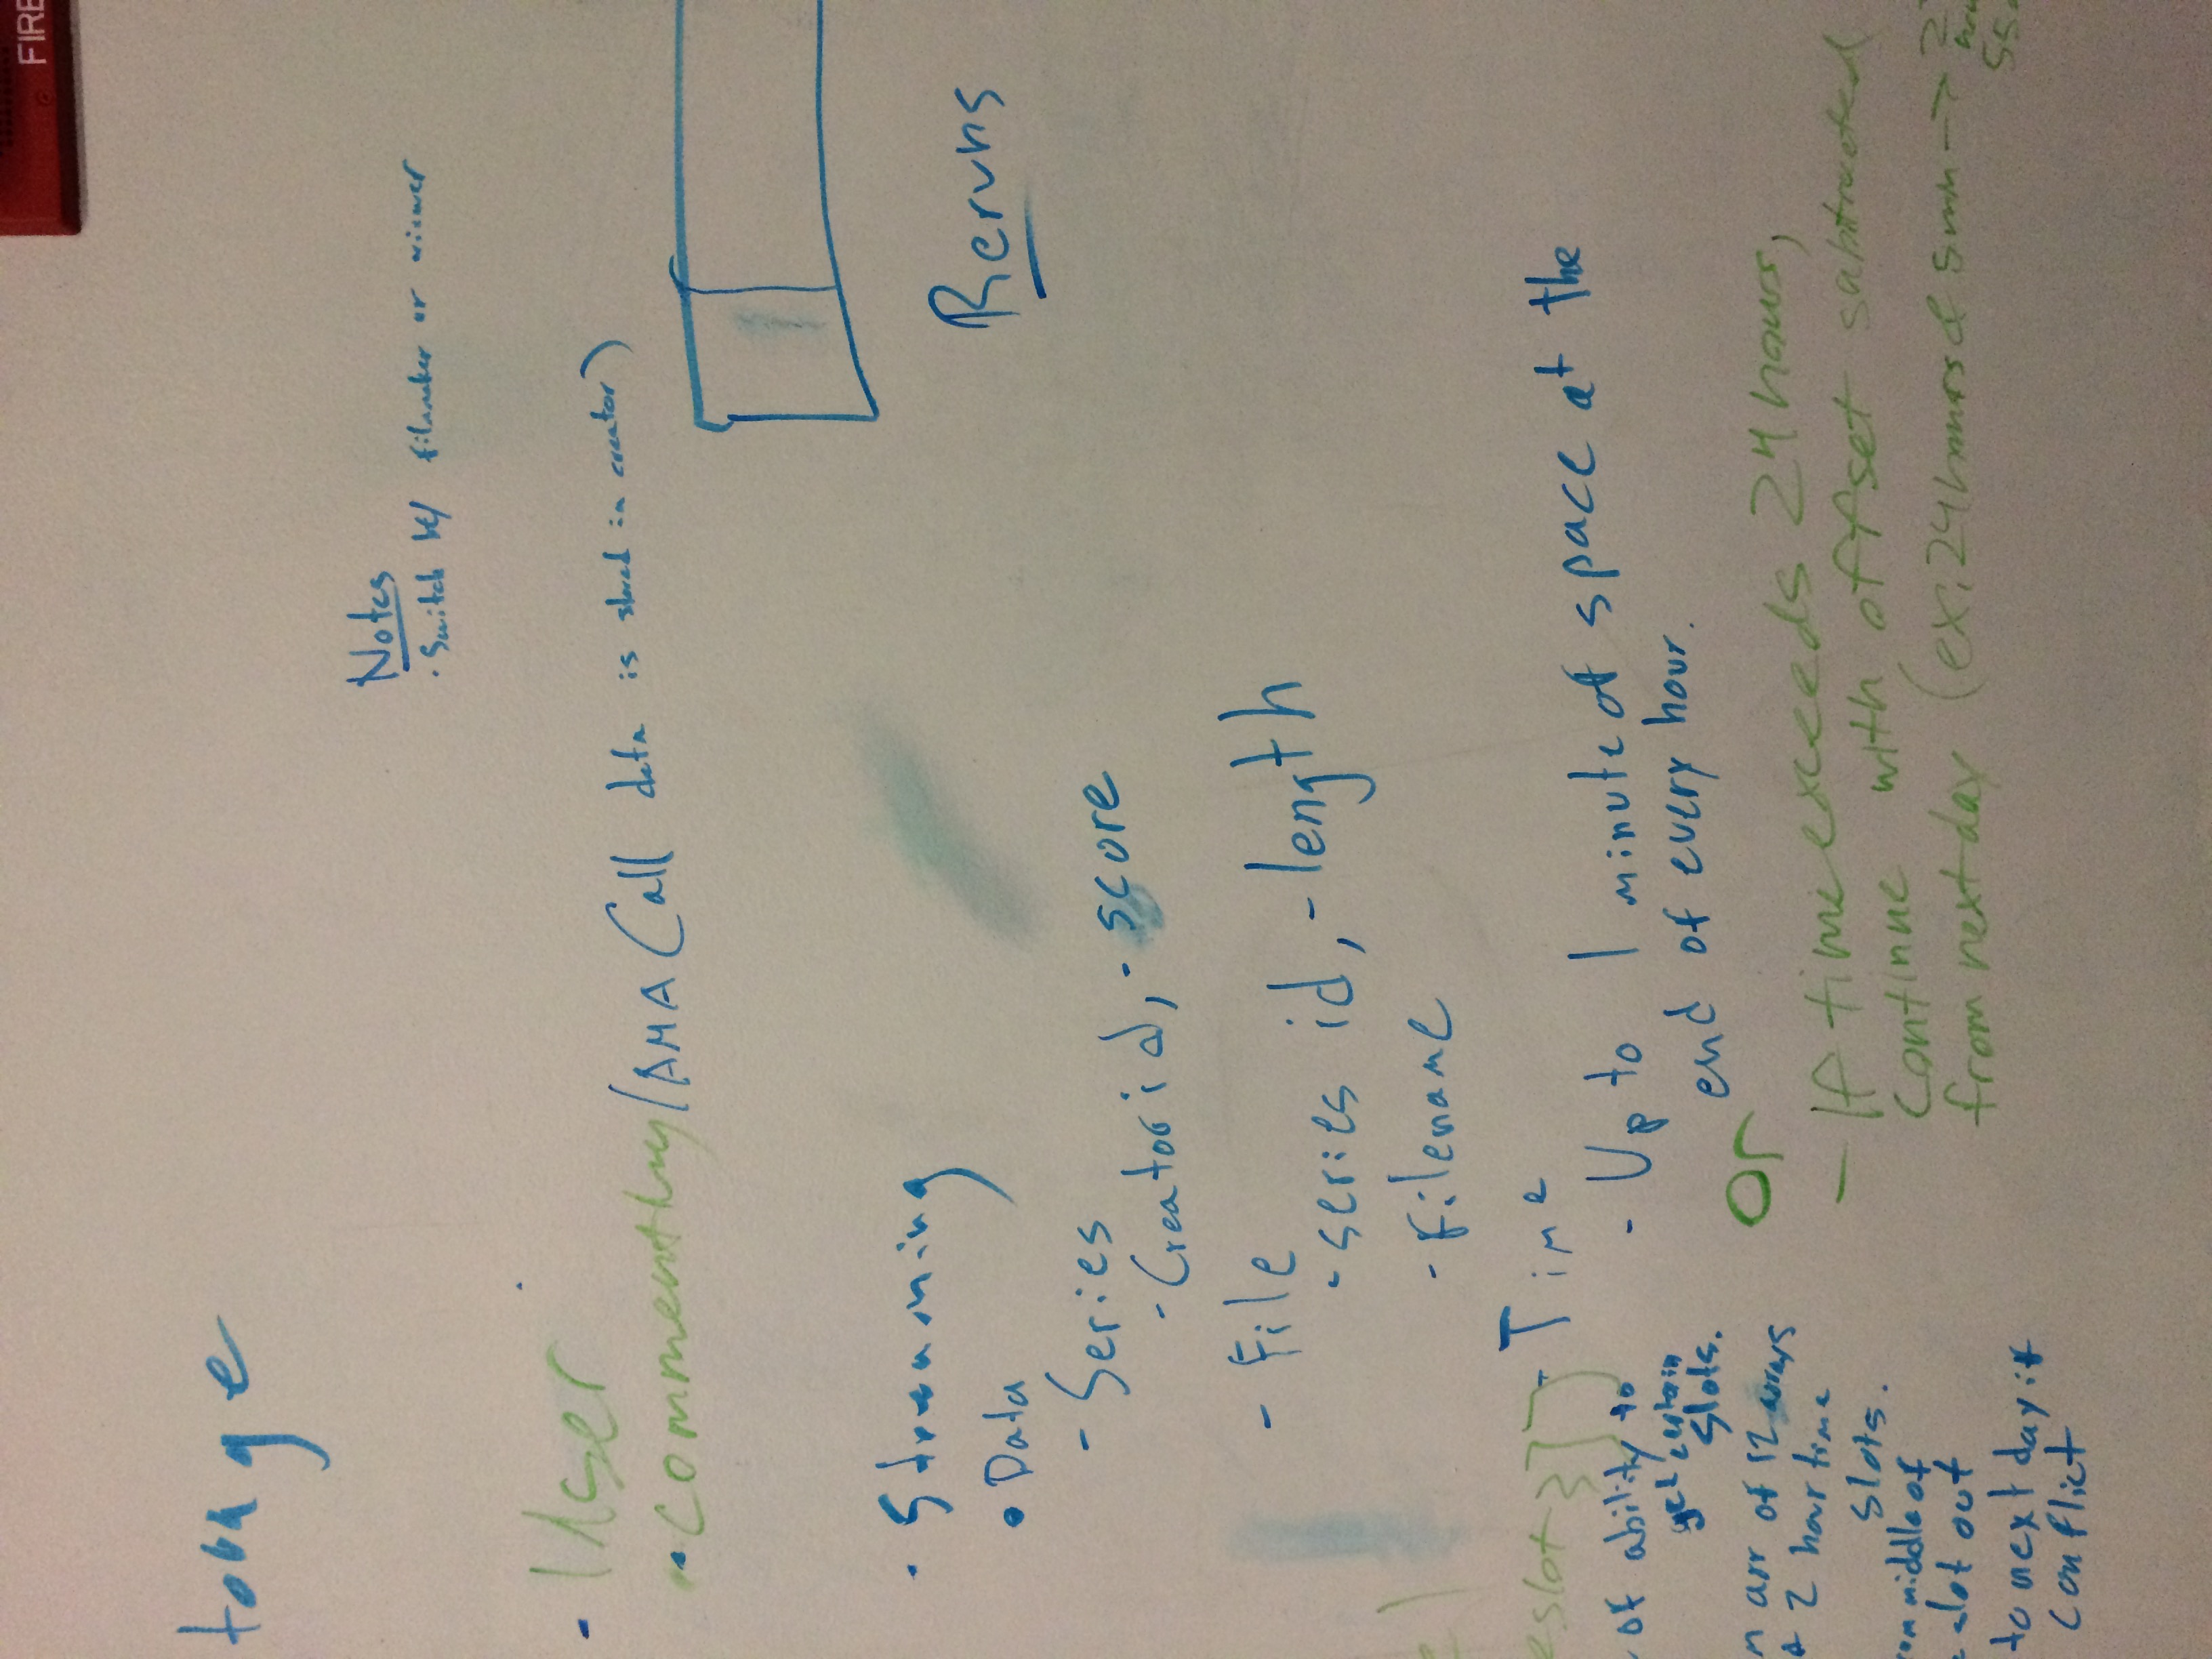 FIRE
torage
Notes
· Switch bt/ filmmaker or viewer
- User
- Commentary/AMA (all data is stored in creator)
· Streaming
• Data
- Series
- Creator id, - score
- File
- series id, - length
- Filename
eslot}]]
- Time
- Up to 1 minute of space at the
end of every hour.
Or
- If time exceeds 24 hours,
continue with offset subtracted
from next day (ex. 24 hours & 5 min ->
55
Reruns
of ability to
get certain
slots.
n arr of 12 arrays
2 hour time
slots.
om middle of
slot out
to next day if
conflict